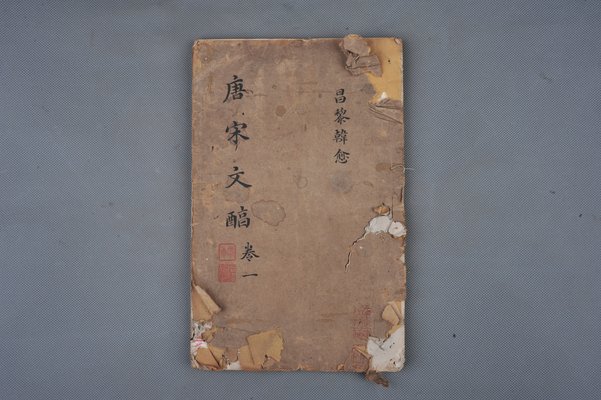 昌黎韓愈
唐宋文醕
卷一